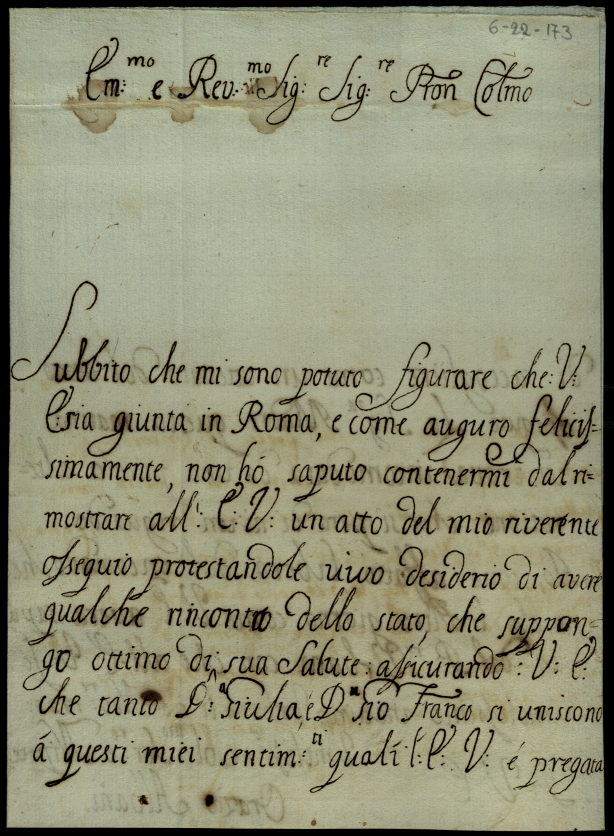 6-22-173
Em:mo e Rev:mo Sig:re Sig:re Pron Colmo
Subbito che mi sono potuto figurare che: V:
E: sia giunta in Roma, e come auguro felicis-
simamente, non hó saputo contenermi dal ri-
mostrare all': E: V: un atto del mio riverente
ossequio protestandole vivo desiderio di avere
qualche rincontro dello stato, che suppon-
go ottimo di sua Salute: assicurando: V: E:
che tanto D:a Giulia, é D:n Gio Franco si uniscono
á questi miei sentim:ti quali l': E: V: é pregata